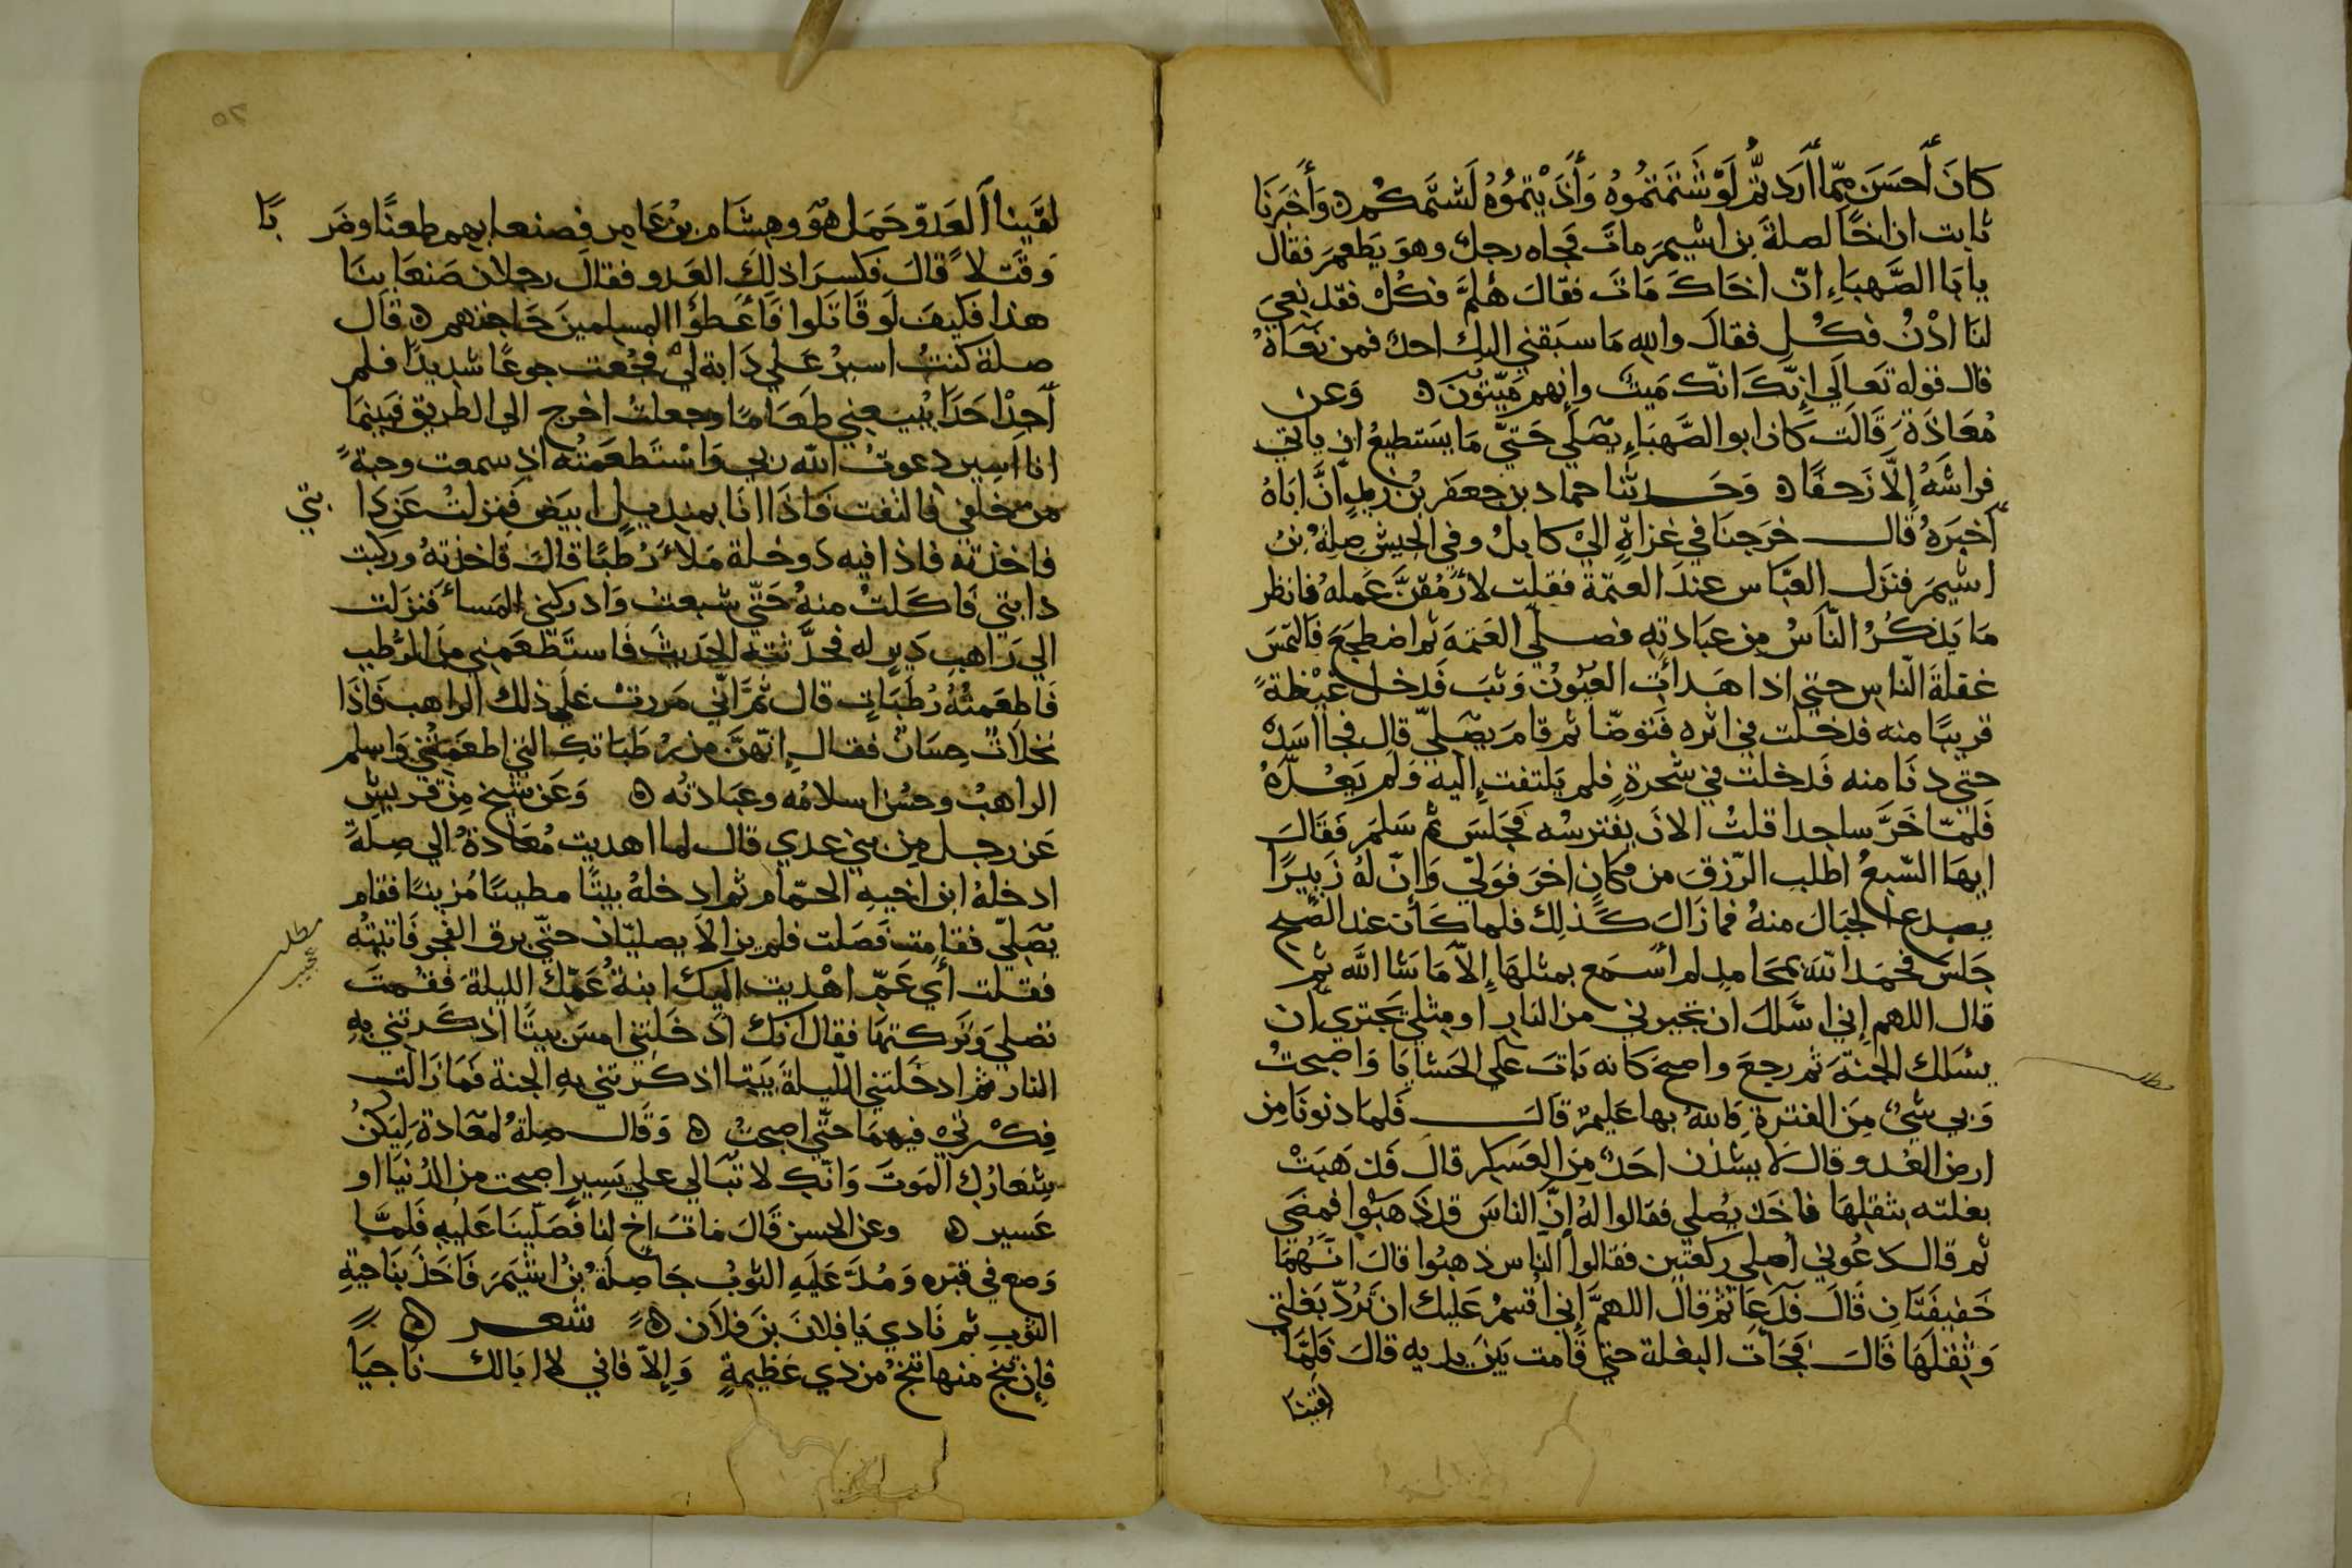 كانَ أَحسَن مِمّا أَرَدتُّم لَوْ شَتمتمُوهُ وَأَذَيْتمُوُهُ لَشتَّمكُم ه وَأَخبَرَنَا
ثابت ان اخًا لصلةَ بن اشيمَ ماتَ فجاه رجل وهوَ يَطعمَ فقال
يابَا الصَّهبَاءِ انّ اخاكَ مَاتَ فقالَ هَلُمَّ فكُلْ فقد نعِيَ
لنَا ادْنُ فكُل فقالَ والله مَا سَبَقني اليك احد فمن نعَاهُ
قال قوله تَعَالَي إنَّكَ انّك مَيت وإنهم مَيّتونَ ه وَعن
مُعَاذَة قَالَت كَان ابو الصَّهبَاءِ يصَلّي حَتيّ مَا يَستطيعُ ان ياتي
فراشَهُ إلاّ زَحفًا ه وَحَدثنا حماد بن جعفَر بْن زيدٍ أَنَّ ابَاهُ
أَخبَرهُ قال خرَجنَا في غزاةٍ اليْ كابلُ وفي الجيش صِلةُ بنُ
اشيمَ فنزَل العبَّاس عندَ العتمَة فقلت لأَرْمُقنَّ عَملهُ فانظر
مَا يَذكُرُ النّاسُ مِن عبَادتهِ فصلّي العَتمَة ثم اضطجَعَ فَالتمَسَ
غفلةَ النّاس حتي اذا هَدأَت العيُون وَثبَ فَدخل غيْظةً
قريبًا منه فدخلت في اثره فَتوضّا ثم قامَ يصَليّ قال فجا اسَدٌ
حتي دنَا منه فَدخلت في شجرةٍ فلم يَلتفت إليه وَلم يَعُدّهُ
فَلمّا خَرَّ ساجدا قلتُ الانَ يفترسُه فجَلسَ ثم سَلمَ فَقَالَ
ايهَا السّبعُ اطلب الرّزقَ من مكَانٍ اخرَ فوَليّ وَإنّ لهُ زَبيرًا
يصدع الجبَالَ منهُ فما زَالَ كَذلِك فلما كَان عند الصبح
جَلسَ فحَمدَ اللهَ بمحَامدٍ لم أَسمَع بمثلهَا إلاّ مَا شَا الله ثم
قال اللهم إني اسَئلك ان تجيرني من النارِ او مِثلي يَجتري ان
يسَئلك الجنّةَ ثم رجعَ واصبحَ كانه بَاتَ علَي الحَشايَا وَاصبحتُ
وَبي شيءٌ مِنَ الفترة فَاللهُ بها عَليمٌ قالَ فَلما دنونَا مِن
ارض العَدو قالَ لا يَشذن احَدٌ مِنَ العَسكر قال فَذهَبَتْ
بغلته بثقلِهَا فاخَذ يُصلي فقالوا لهُ إنّ الناسَ قد ذَهَبُوا فمضَي
ثم قال دَعُوني أُصلي ركعتَين فقالوا النّاس ذهبُوا قالَ انّهُمَا
خَفيفَتَانِ قَالَ فدَعَا ثمّ قال اللهمَّ إني اُقسمُ عَليك ان تَرُدّ بَغلتي
وَثِقلهَا قَالَ فجَآت البغلة حتي قَامت بَينَ يديه قالَ فَلمَّا
لقينا
لقَينا ألعَدوّ حَمَل هُوَ وهِشَام بنُ عَامر فصنعا بهم طعنًا وضَر بًا
وَقَتلاً قالَ فكسرَا ذلكَ العَدو فقالَ رجلان صَنعَا بنَا
هذا فكيفَ لَو قَاتلوا فأعْطؤا المسلمينَ حَاجتهم ه قال
صلة كنتُ اسيرُ عَلي دَابة ليْ فجُعت جوعًا شديدًا فلم
أَجدْ احَدًا يَبيعني طَعَامًا وجعلتُ اخرج الي الطريق فبَينمَا
انا اسير دعوتُ الله ربي وَاسْتَطعَمتُه اذ سمعت وجبةً
من خلفي فالتفت فَاذَا انَا بمنديلٍ ابيَض فَنزلتُ عَن دا بتي
فاخذته فاذا فيه دَوخلة مَلأَ رُطبًا قالَ فاخذتهُ وركبت
دابتي فَاكَلتُ منهُ حَتّي شبعتُ وَادركني المَسأُ فَنزَلت
الي رَاهبٍ دَيرٍ له فحدّثته الحَديثَ فَاستَطعَمني مِن الرُّطبِ
فَاطعَمتُهُ رُطَبَاتٍ قال ثمَّ انّي مَررتُ علي ذلك الراهب فَاذَا
نخلاَتٌ حِسَانٌ فقال إنّهنّ من رُطَبَاتك التي اطعَمتَني وَاسلم
الراهبُ وحسُن اسلامُه وعبَادتُه ه وَعَن شيخ مِن قريشٍ
عَن رجل مِن بني عدي قال لما اهديت مُعَاذةُ الي صِلةَ
ادخلهُ ابن اخيهِ الحمّام ثم ادخلهُ بيتًا مطيبًا مُزينًا فقام
يصَليّ فقامت فَصَلت فلم يزالا يصليَان حتّي برق الفجر فَاتيتُه
مطلب عجيب
فقلت أَي عَمّ اهْديت اليك ابنةُ عَمّك الليلة فقُمتَ
تصَلي وَتَركتهَا فقال انّك ادْخَلتني امسَ بيتًا اذكَرتني بهِ
النار ثم ادخَلتني الليلةَ بَيتا اذكرتني بهِ الجنة فَمَا زَالت
فِكْرتيْ فيهمَا حتّي اصبحتُ ه وَقَال صلةُ لمعَاذةَ لِيَكنُ
شعَارُكِ المَوتَ وَانّكِ لا تبَالي علي يَسيرٍ اصبحت من الدُنيَا او
عَسير ه وعن الحسن قَالَ مَاتَ اخ لنا فَصَلّينَا عَليهِ فَلمَّا
وَضع في قبره وَمُدَّ عَلَيهِ الثوبُ جَا صِلَةُ بنُ اشيَمَ فَاخَذَ بنَاحيَةِ
الثوبِ ثم نَادي يَا فلانَ بنَ فلاَن ه شعر ه
فإن تنجُ منها تنجُ من ذي عَظيمةٍ وَإلاّ فاني لا اِخَالك نَاجيَا